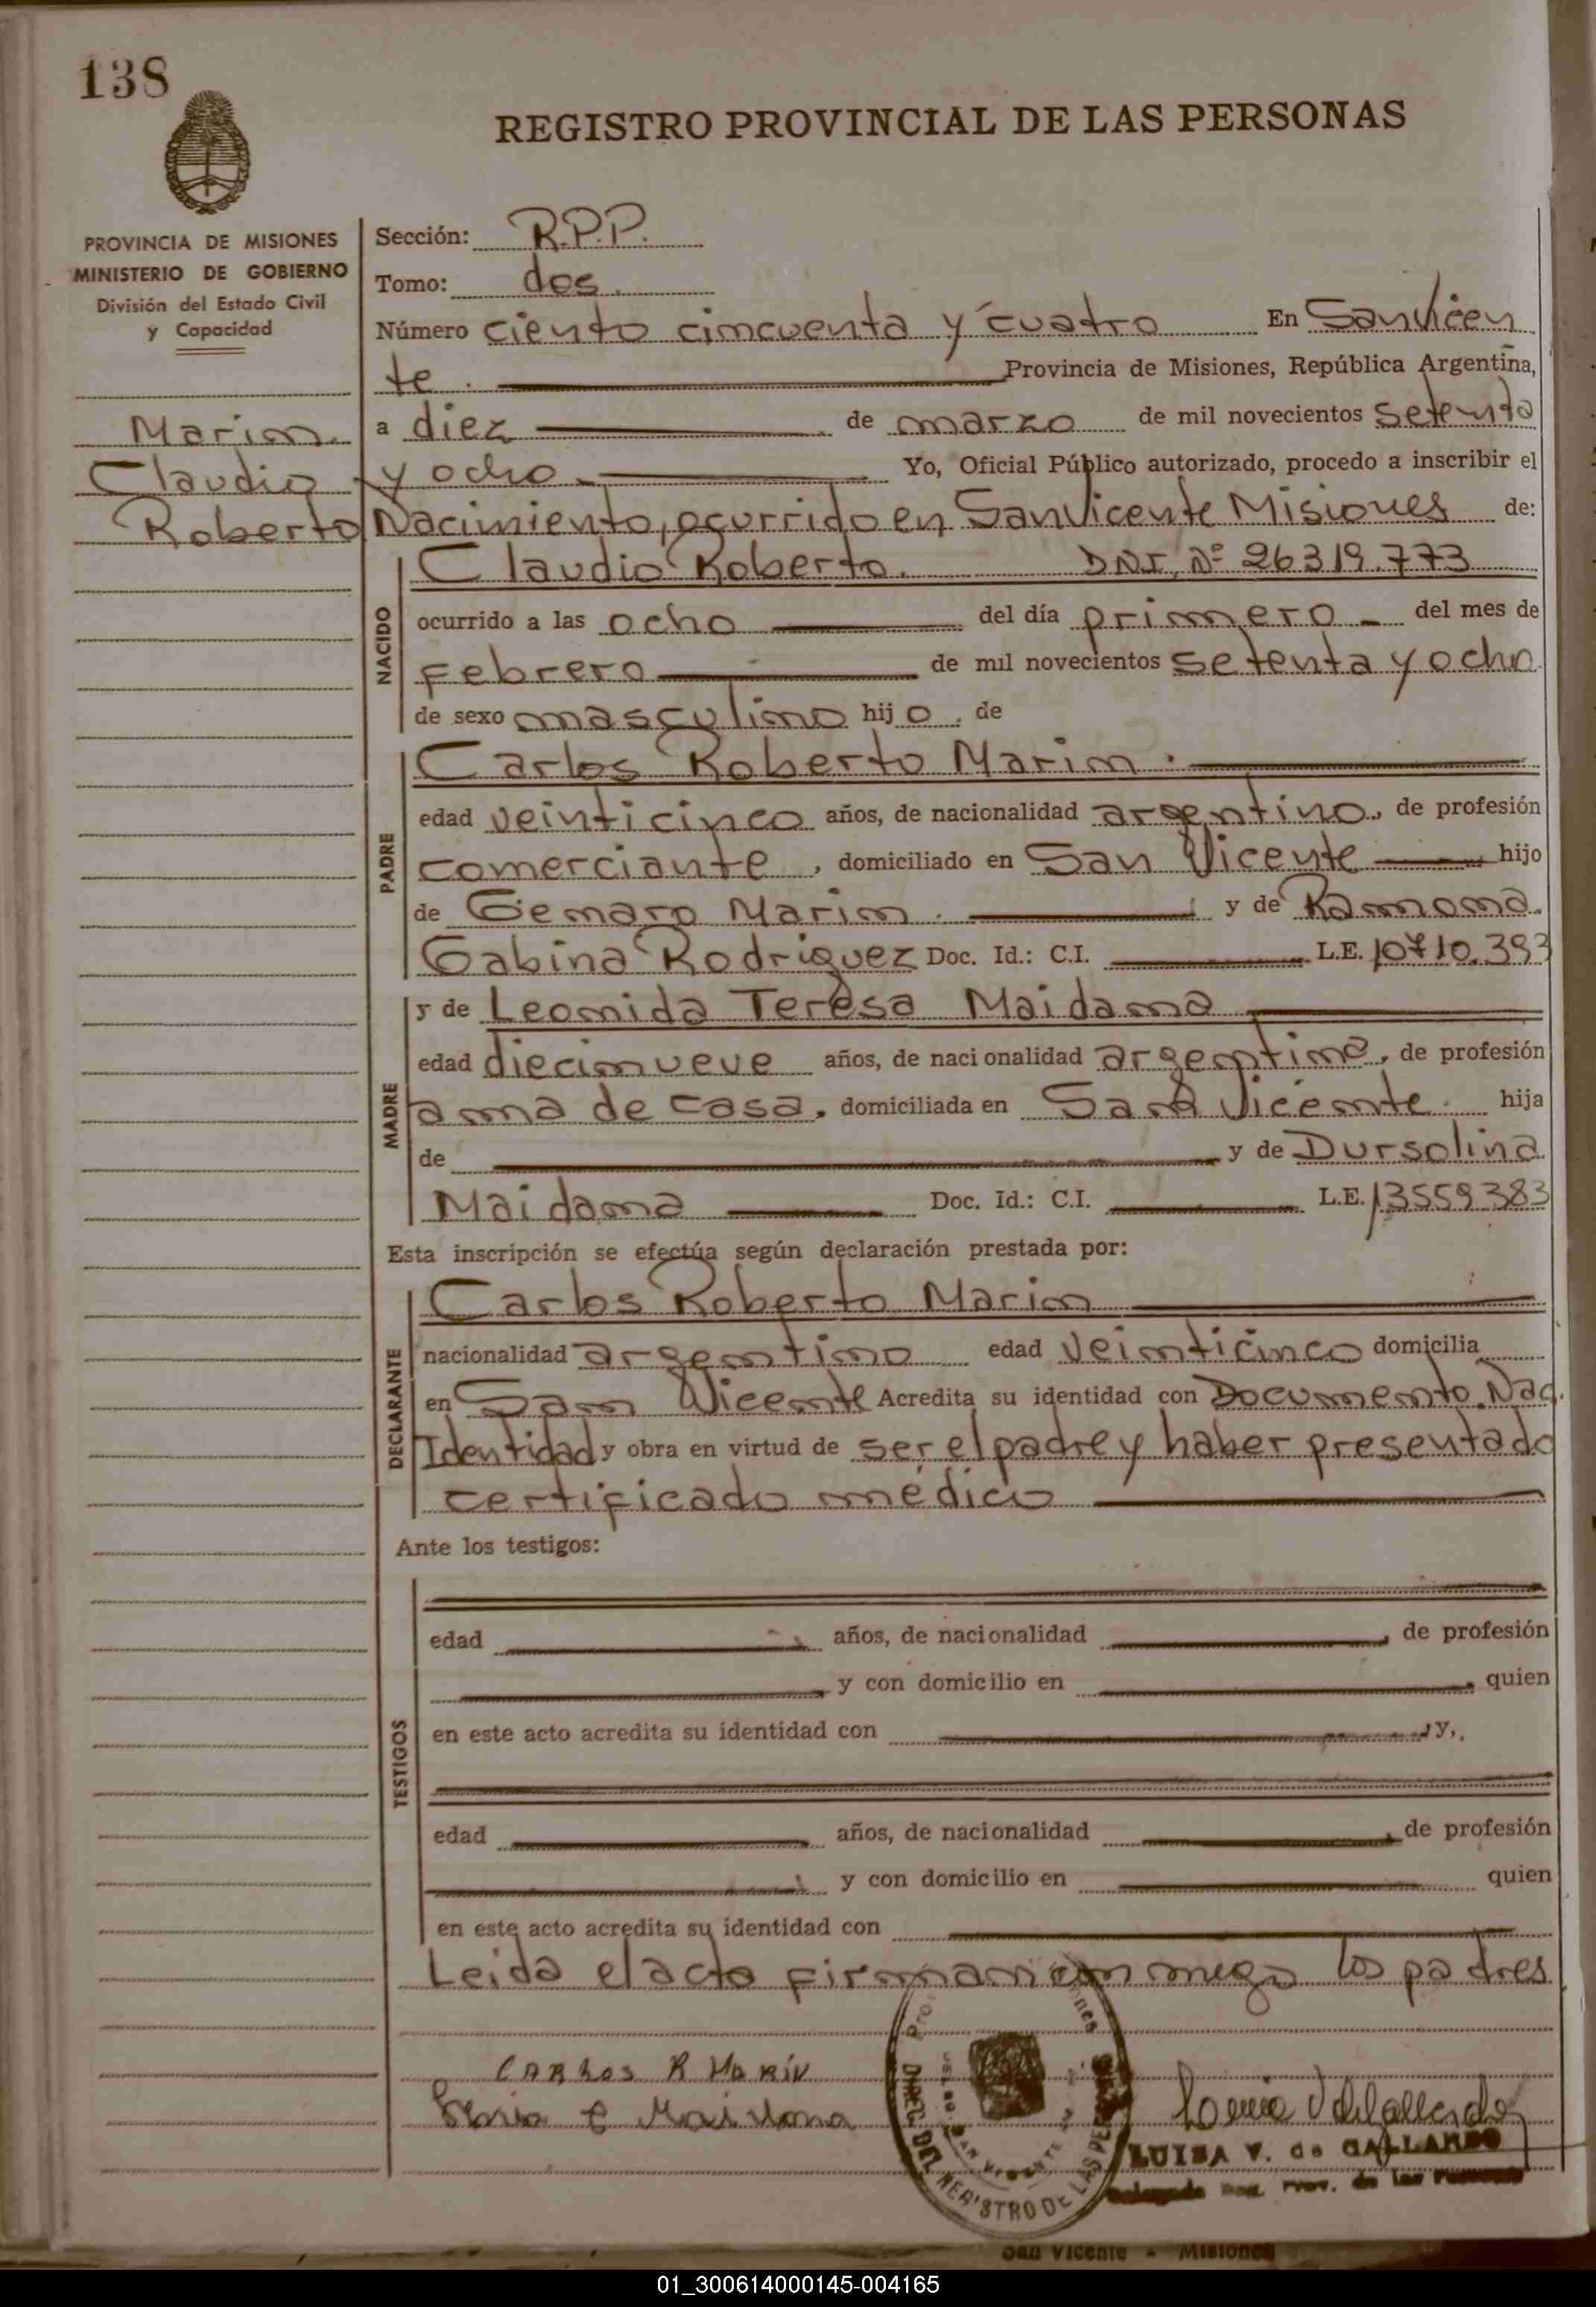 138
REGISTRO PROVINCIAL DE LAS PERSONAS
PROVINCIA DE MISIONES
MINISTERIO DE GOBIERNO
División del Estado Civil
y Capacidad
Marin
Claudio
Roberto
Sección: R.P.P.
Tomo: dos.
Número ciento cincuenta y cuatro En San Vicen
te. Provincia de Misiones, República Argentina,
a diez de marzo de mil novecientos setenta
y ocho. Yo, Oficial Público autorizado, procedo a inscribir el
Nacimiento, ocurrido en San Vicente Misiones de:
NACIDO
Claudio Roberto. DNI, Nº 26319.773
ocurrido a las ocho del día primero del mes de
febrero de mil novecientos setenta y ocho
de sexo masculino hijo, de
PADRE
Carlos Roberto Marin.
edad veinticinco años, de nacionalidad argentino, de profesión
comerciante, domiciliado en San Vicente hijo
de Genaro Marin. y de Ramona
Gabina Rodriguez Doc. Id.: C.I. L.E. 10710.393
MADRE
y de Leonida Teresa Maidana
edad diecinueve años, de nacionalidad argentina, de profesión
ama de casa, domiciliada en San Vicente. hija
de y de Dursolina
Maidana Doc. Id.: C.I. L.E. 13559383
Esta inscripción se efectúa según declaración prestada por:
DECLARANTE
Carlos Roberto Marin
nacionalidad argentino edad veinticinco domicilia
en San Vicente Acredita su identidad con Documento. Nac.
Identidad y obra en virtud de ser el padre y haber presentado
certificado médico
Ante los testigos:
TESTIGOS
edad años, de nacionalidad , de profesión
y con domicilio en , quien
en este acto acredita su identidad con y,
edad años, de nacionalidad , de profesión
y con domicilio en quien
en este acto acredita su identidad con
Leida el acta firman conmigo los padres
CARLOS R MARÍN
Maidana
DIREC. DEL REGISTRO DE LAS PERSONAS
SAN VICENTE
LUISA V. de GALLARDO
Delegada Reg. Prov. de las Personas
San Vicente - Misiones
01_300614000145-004165